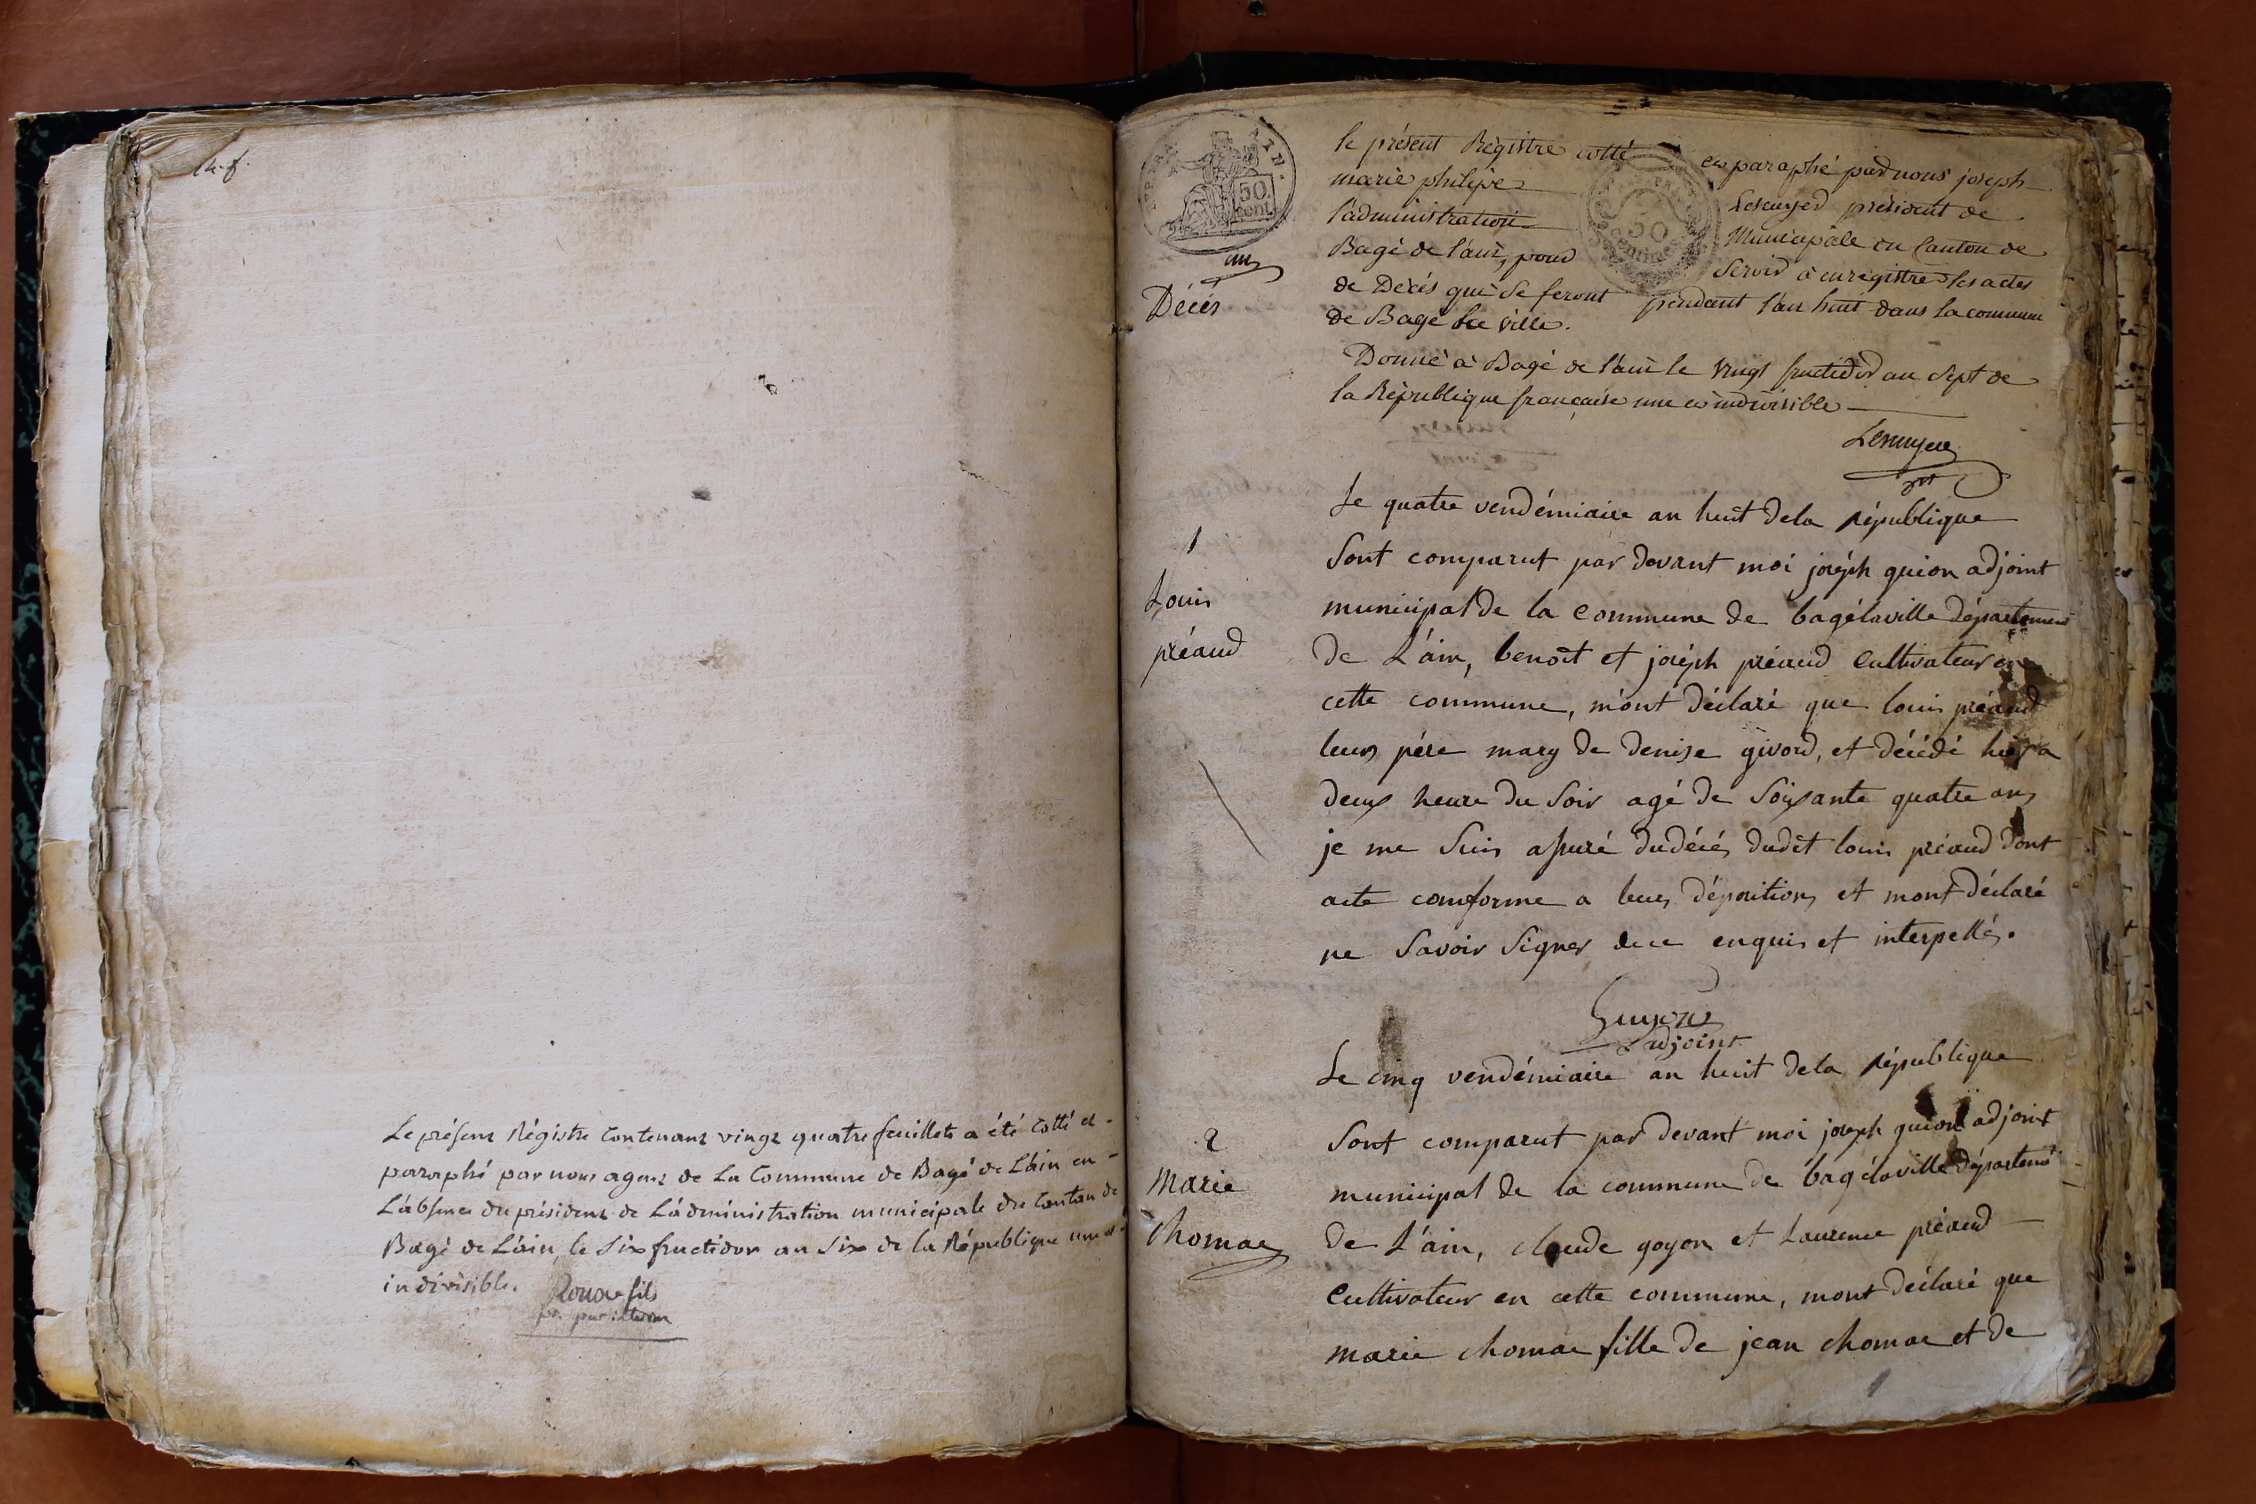 Le présent Régistre Contenant vingt quatre feuillets a été Cotté et
paraphé par nous agent de La Commune de Bagé de L'ain en
L'absence du président de L'administration municipale du Canton de
Bagé de L'ain, le Six fructidor an Six de la République une et
indivisible.
fils
50
cent
un
Décés
le présent Régistre cotté et paraphé par nous joseph
marie philipe Lescuyer président de
l'administration Municipale du Canton de
Bagé de l'ain, pour Servir à enregistrer les actes
de Décés qui Se feront pendant l'an huit dans la commune
de Bagé la ville.
Donné à Bagé de l'ain le vingt fructidor an Sept de
la République française une et indivisible
Lescuyer
50
1
Louis
préaud
Le quatre vendémiaire an huit de la République
Sont comparut par devant moi joséph guion adjoint
municipal de la Commune de bagélaville département
de L'ain, benoît et joséph préaud Cultivateur en
cette commune, m'ont déclaré que louis préaud
leur pére mary de denise givord, et décédé hier a
deux heure du Soir agé de Soixante quatre ans
je me Suis assuré du décés dudit louis préaud dont
acte comforme a leurs dépositions et mont déclaré
ne Savoir Signer de ce enquis et interpellés.
Guyon
adjoint
2
Marie
chomac
Le cinq vendémiaire an huit de la République
Sont comparut par devant moi joseph guion adjoint
municipal de la commune de bagélaville département
de L'ain, claude goyon et Laurence préaud
Cultivateur en cette commune, mont déclaré que
marie chomac fille de jean chomac et de